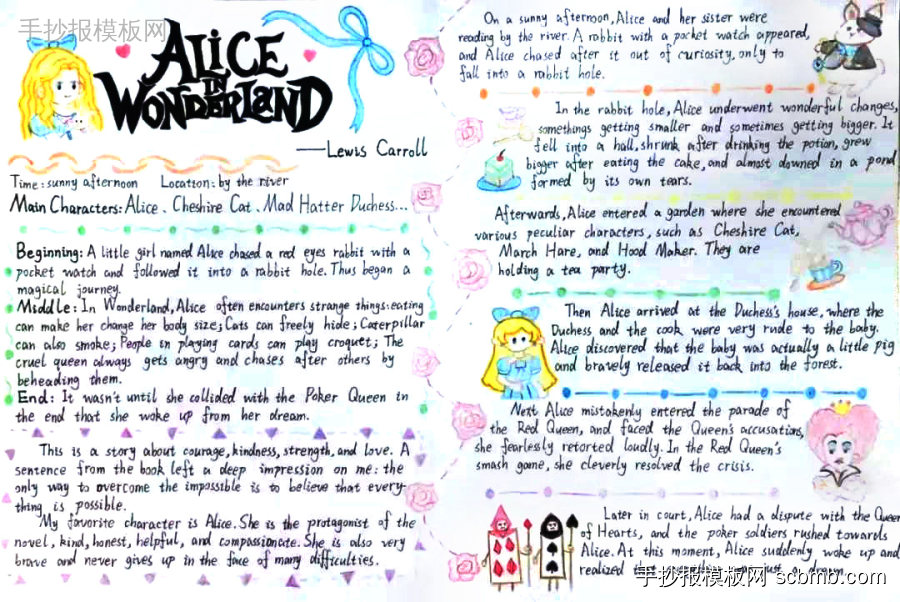 手抄报模板网
ALICE
IN
WONDERLAND
—Lewis Carroll
Time: sunny afternoon Location: by the river
Main Characters: Alice、Cheshire Cat、Mad Hatter Duchess...
Beginning: A little girl named Alice chased a red eyes rabbit with a
pocket watch and followed it into a rabbit hole. Thus began a
magical journey.
Middle: In Wonderland, Alice often encounters strange things: eating
can make her change her body size; Cats can freely hide; Caterpillar
can also smoke; People in playing cards can play croquet; The
cruel queen always gets angry and chases after others by
beheading them.
End: It wasn't until she collided with the Poker Queen in
the end that she woke up from her dream.
This is a story about courage, kindness, strength, and love. A
sentence from the book left a deep impression on me: the
only way to overcome the impossible is to believe that every-
thing is possible.
My favorite character is Alice. She is the protagonist of the
novel, kind, honest, helpful, and compassionate. She is also very
brave and never gives up in the face of many difficulties.
On a sunny afternoon, Alice and her sister were
reading by the river. A rabbit with a pocket watch appeared,
and Alice chased after it out of curiosity, only to
fall into a rabbit hole.
In the rabbit hole, Alice underwent wonderful changes,
somethings getting smaller and sometimes getting bigger. It
fell into a hall, shrunk after drinking the potion, grew
bigger after eating the cake, and almost downed in a pond
formed by its own tears.
Afterwards, Alice entered a garden where she encountered
various peculiar characters, such as Cheshire Cat,
March Hare, and Hood Maker. They are
holding a tea party.
Then Alice arrived at the Duchess's house, where the
Duchess and the cook were very rude to the baby.
Alice discovered that the baby was actually a little pig
and bravely released it back into the forest.
Next Alice mistakenly entered the parade of
the Red Queen, and faced the Queen's accusations,
she fearlessly retorted loudly. In the Red Queen's
smash game, she cleverly resolved the crisis.
Later in court, Alice had a dispute with the Queen
of Hearts, and the poker soldiers rushed towards
Alice. At this moment, Alice suddenly woke up and
realized
手抄报模板网 scbmb.com